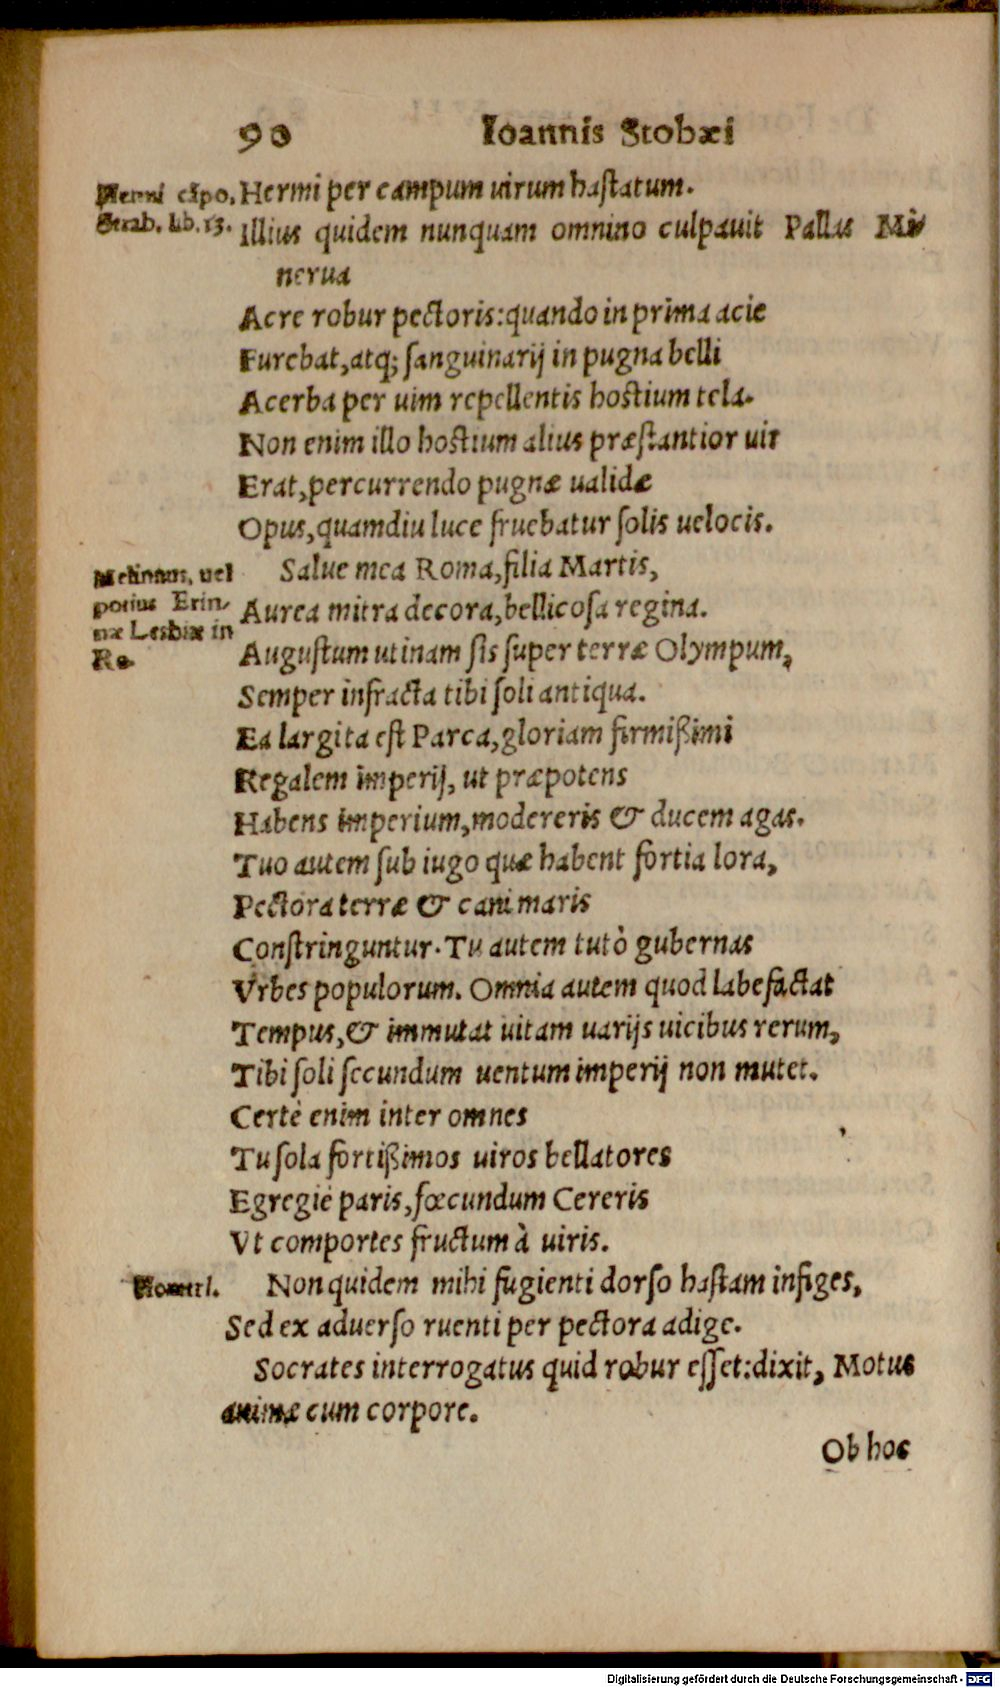 90 Ioannis Stobæi
Hermi cāpo, Hermi per campum uirum hastatum.
Strab. lib. 13. Illius quidem nunquam omnino culpauit Pallas Mi-
nerua
Acre robur pectoris: quando in prima acie
Furebat, atq; sanguinarij in pugna belli
Acerba per uim repellentis hostium tela.
Non enim illo hostium alius præstantior uir
Erat, percurrendo pugnæ ualidæ
Opus, quamdiu luce fruebatur solis uelocis.
uel Salue mea Roma, filia Martis,
potius Erin-
Aurea mitra decora, bellicosa regina.
næ Lesbiæ in
Augustum utinam sis super terræ Olympum,
Ro.
Semper infracta tibi soli antiqua.
Ea largita est Parca, gloriam firmißimi
Regalem imperij, ut præpotens
Habens imperium, modereris & ducem agas.
Tuo autem sub iugo quæ habent fortia lora,
Pectora terræ & cani maris
Constringuntur. Tu autem tutò gubernas
Vrbes populorum. Omnia autem quod labefactat
Tempus, & immutat uitam uarijs uicibus rerum,
Tibi soli secundum uentum imperij non mutet.
Certè enim inter omnes
Tu sola fortißimos uiros bellatores
Egregiè paris, fœcundum Cereris
Vt comportes fructum à uiris.
Homeri. Non quidem mihi fugienti dorso hastam infiges,
Sed ex aduerso ruenti per pectora adige.
Socrates interrogatus quid robur esset: dixit, Motus
animæ cum corpore.
Ob hoc
Digitalisierung gefördert durch die Deutsche Forschungsgemeinschaft - DFG